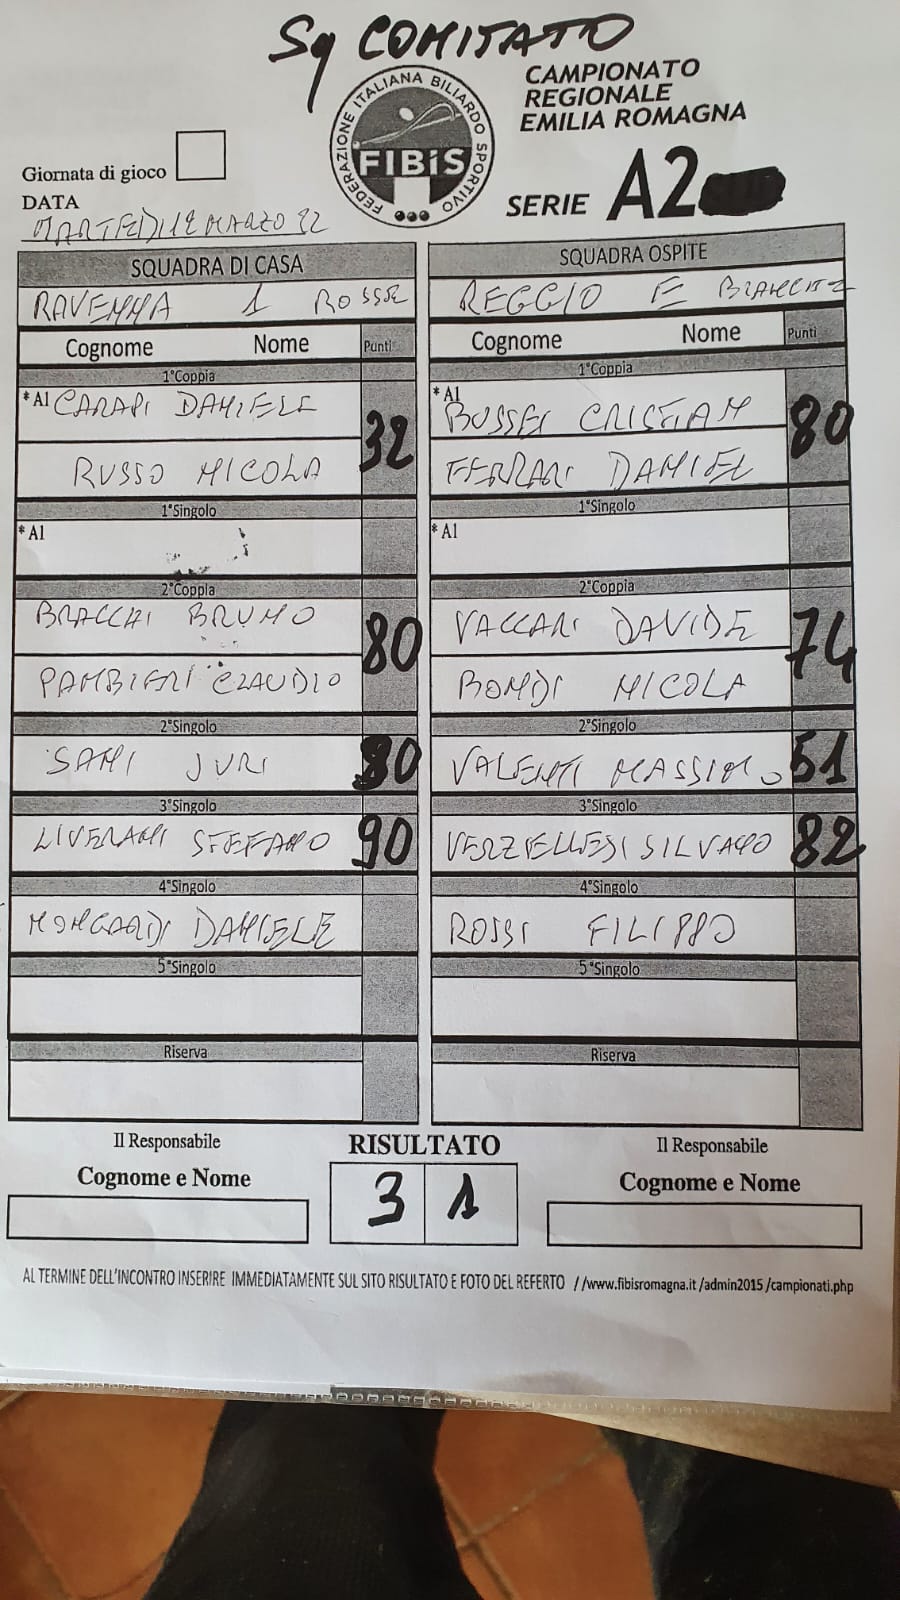 Sq COMITATO
FEDERAZIONE ITALIANA BILIARDO SPORTIVO
FIBiS
CAMPIONATO
REGIONALE
EMILIA ROMAGNA
SERIE A2
Giornata di gioco
DATA
MARTEDI MARZO
SQUADRA DI CASA
RAVENNA 1 ROSSE
Cognome Nome Punti
1°Coppia
*A1 CARAPI DANIELE 32
RUSSO NICOLA
1°Singolo
*A1
2°Coppia
BRACCHI BRUNO 80
PAMBIERI CLAUDIO
2°Singolo
SAMI JURI 80
3°Singolo
LIVERANI STEFANO 90
4°Singolo
MONGARDI DANIELE
5°Singolo
Riserva
SQUADRA OSPITE
REGGIO E
Cognome Nome Punti
1°Coppia
*A1
BUSSEI CRISTIAN 80
FERRARI DANIEL
1°Singolo
*A1
2°Coppia
VACCARI DAVIDE 74
BONDI NICOLA
2°Singolo
VALENTI MASSIMO 51
3°Singolo
VERZELLESI SILVANO 82
4°Singolo
ROSSI FILIPPO
5°Singolo
Riserva
Il Responsabile RISULTATO Il Responsabile
Cognome e Nome 3 1 Cognome e Nome
AL TERMINE DELL'INCONTRO INSERIRE IMMEDIATAMENTE SUL SITO RISULTATO E FOTO DEL REFERTO //www.fibisromagna.it /admin2015 /campionati.php